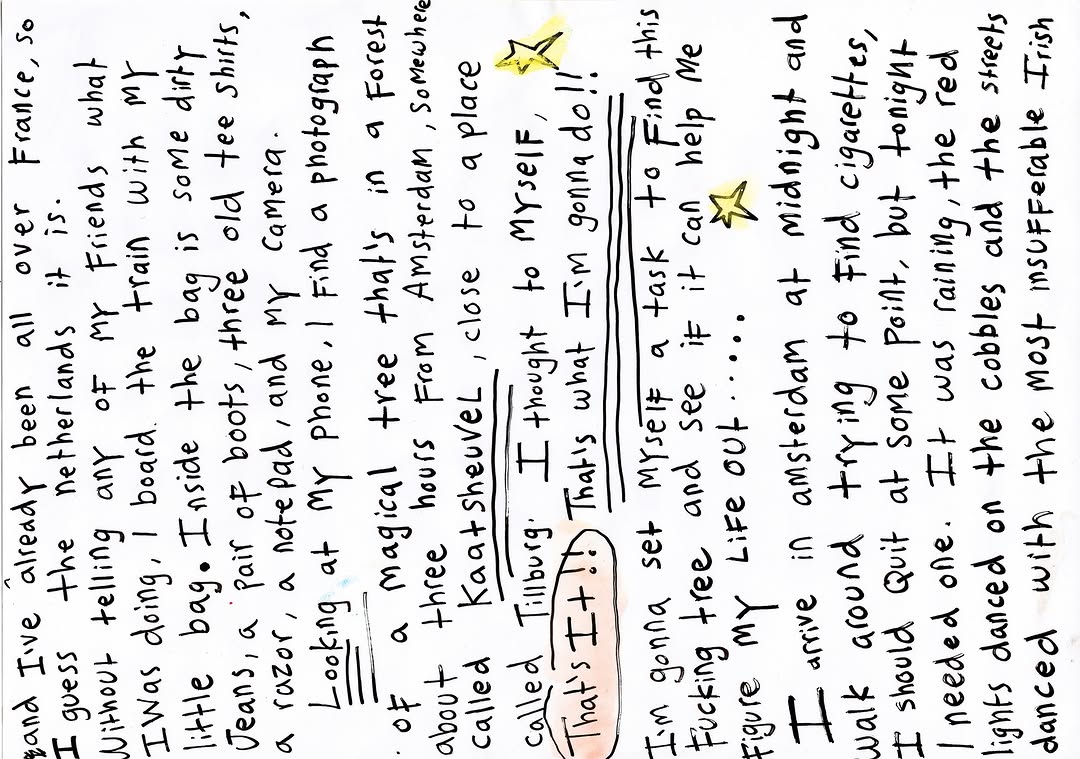 and I've already been all over France, so
I guess the netherlands it is.
Without telling any of my Friends what
I was doing, I board the train with my
little bag. Inside the bag is some dirty
Jeans, a pair of boots, three old tee shirts,
a razor, a notepad, and my camera.
Looking at my phone, I Find a photograph
of a magical tree that's in a Forest
about three hours From Amsterdam, somewhere
called Kaatsheuvel, close to a place
called Tillburg. I thought to myself,
That's It!! That's what I'm gonna do!!
I'm gonna set myself a task to Find this
Fucking tree and see if it can help Me
Figure My Life out.....
I arrive in amsterdam at midnight and
walk around trying to Find cigarettes,
I should Quit at some Point, but tonight
I needed one. It was raining, the red
lights danced on the cobbles and the streets
danced with the most insufferable Irish